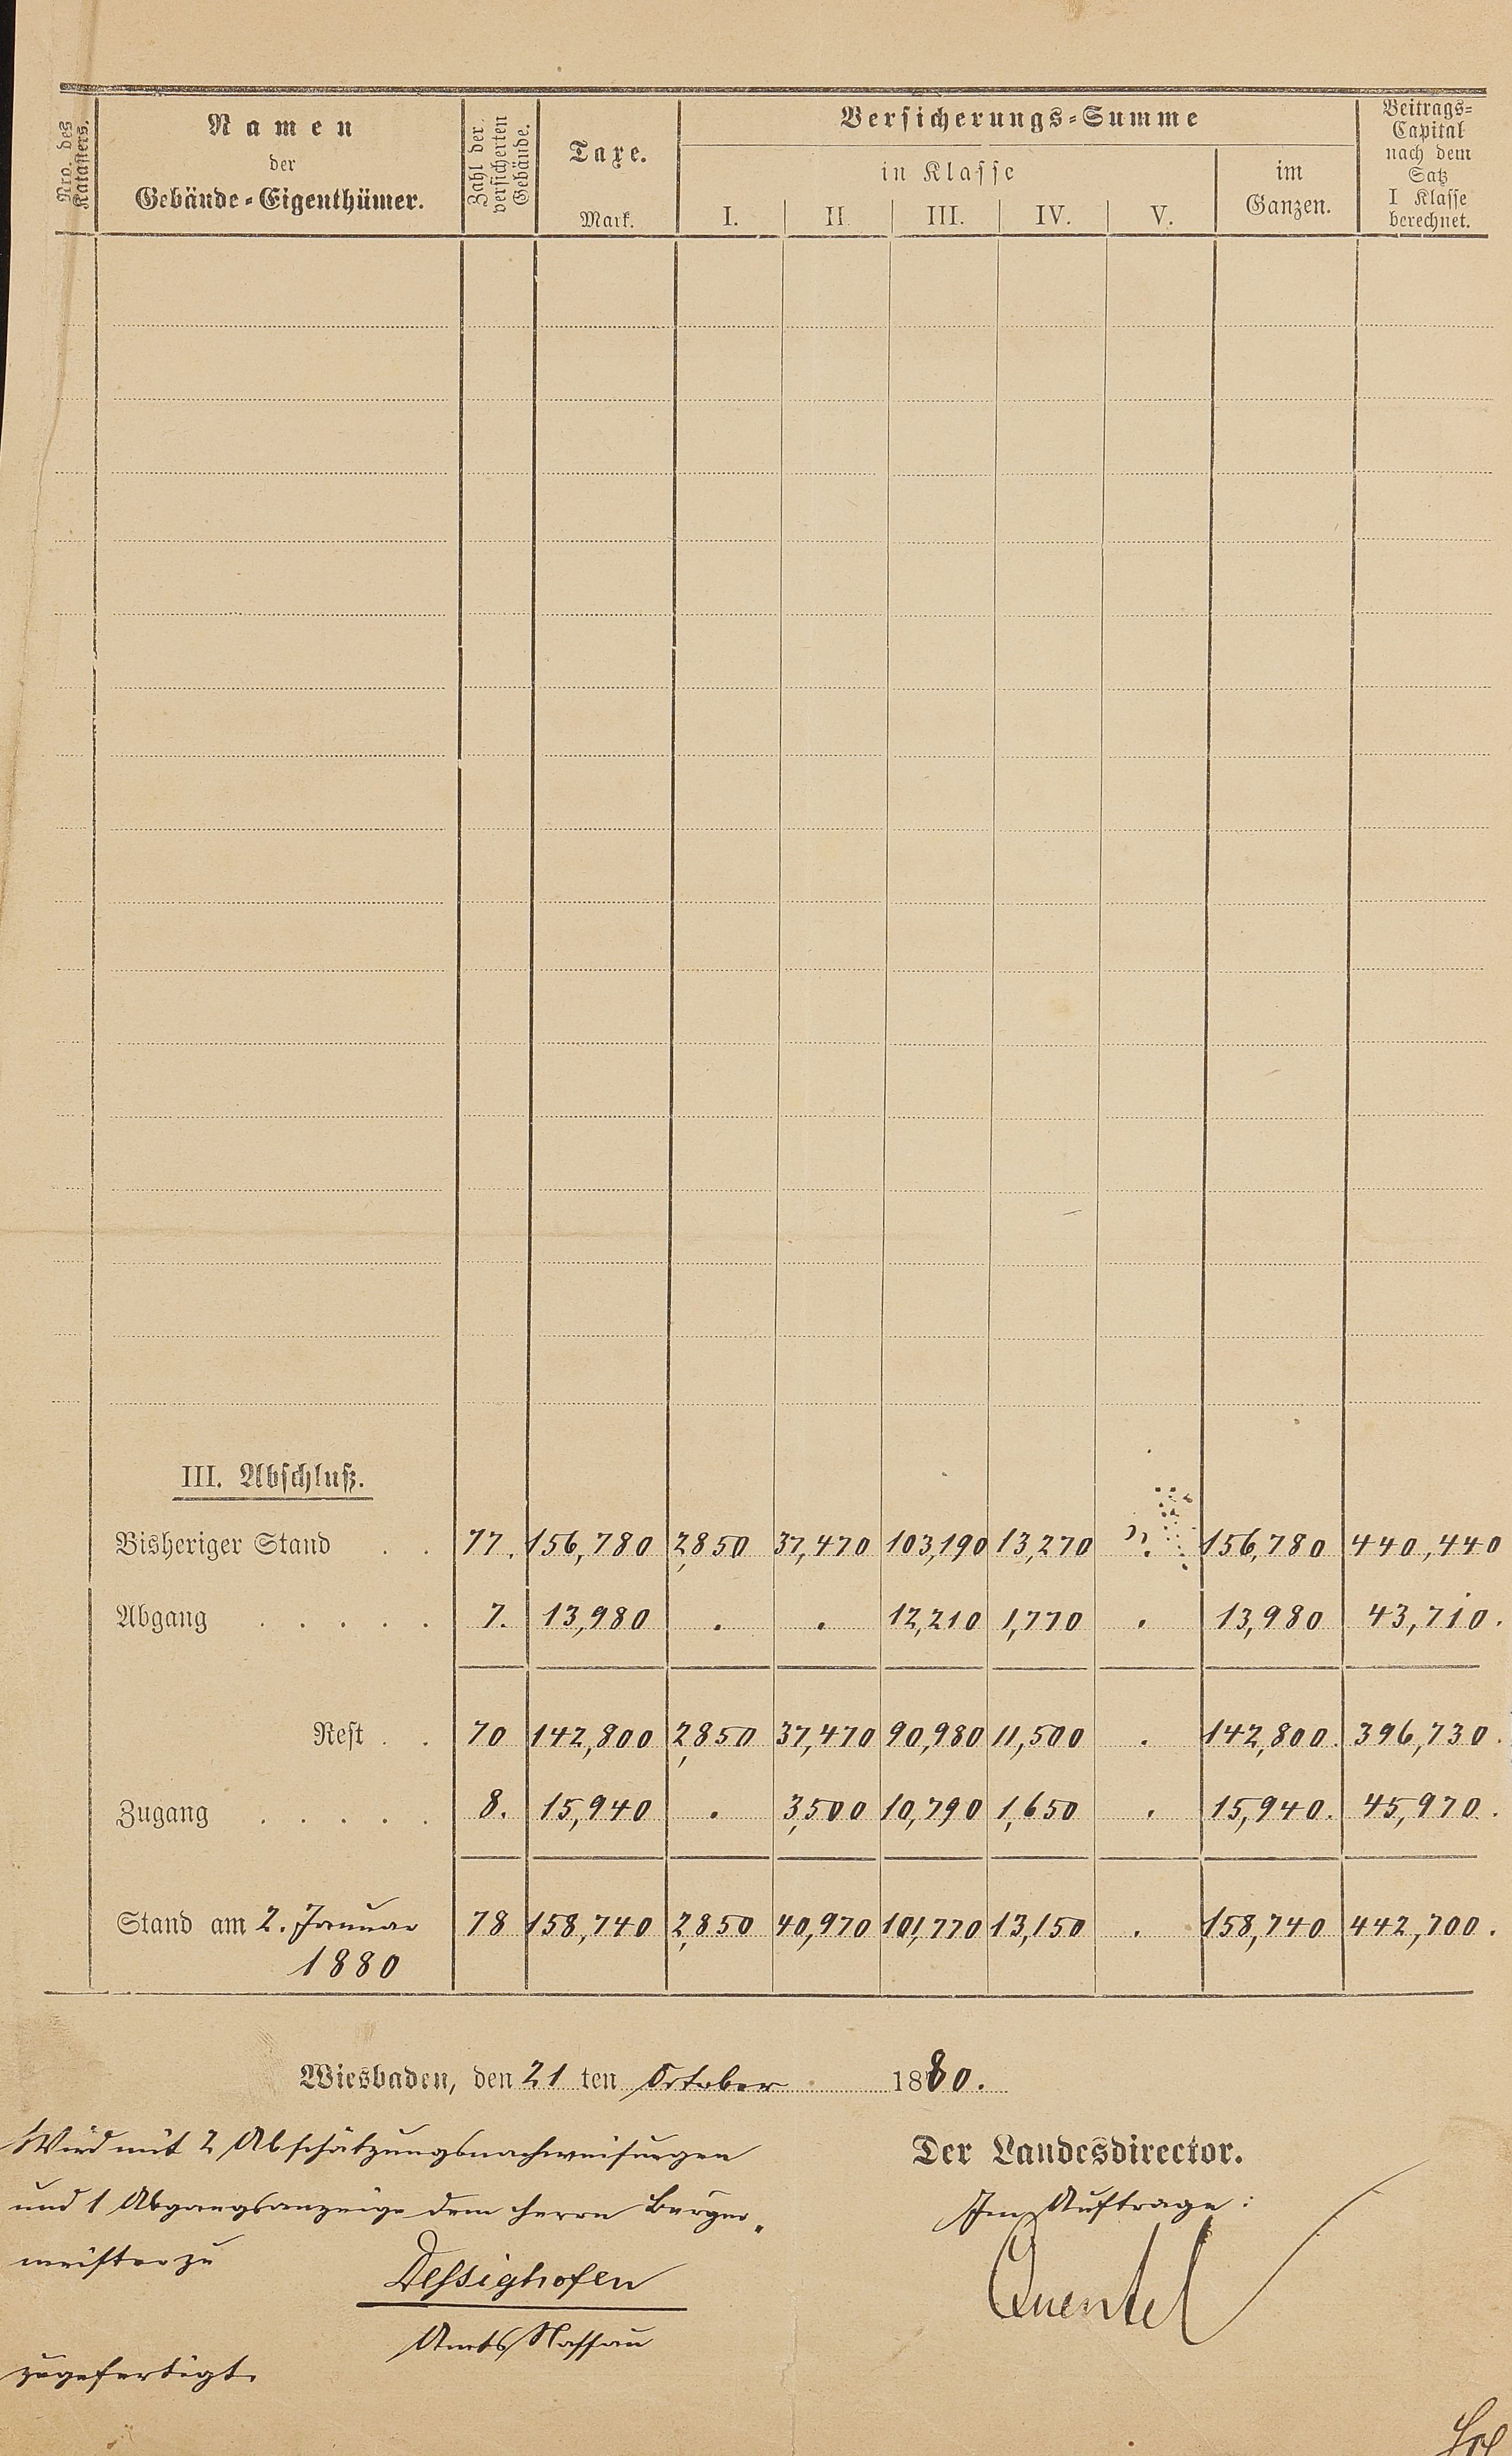 Nro. des
Katasters.
Namen
der
Gebäude-Eigenthümer.
Zahl der
versicherten
Gebäude.
Taxe.
Mark.
Versicherungs-Summe
in Klasse
I. II. III. IV. V.
im
Ganzen.
Beitrags-
Capital
nach dem
Satz
I Klasse
berechnet.
III. Abschluß.
Bisheriger Stand . . 77. 156,780 2,850 37,470 103,190 13,270 . 156,780 440,440
Abgang . . . . . 7. 13,980 . . 12,210 1,770 . 13,980 43,710.
Rest . . 70 142,800 2,850 37,470 90,980 11,500 . 142,800. 396,730.
Zugang . . . . . 8. 15,940 . 3,500 10,790 1,650 . 15,940. 45,970.
Stand am 2. Januar 78 158,740 2,850 40,970 101,770 13,150 . 158,740 442,700.
1880
Wiesbaden, den 21 ten October 1880.
Wird mit 2 Abschätzungsnachweisungen
und 1 Abgangsanzeige dem Herrn Bürger-
meister zu
Dessighofen
Amts Nassau
zugefertigt.
Der Landesdirector.
Im Auftrage:
Quentel